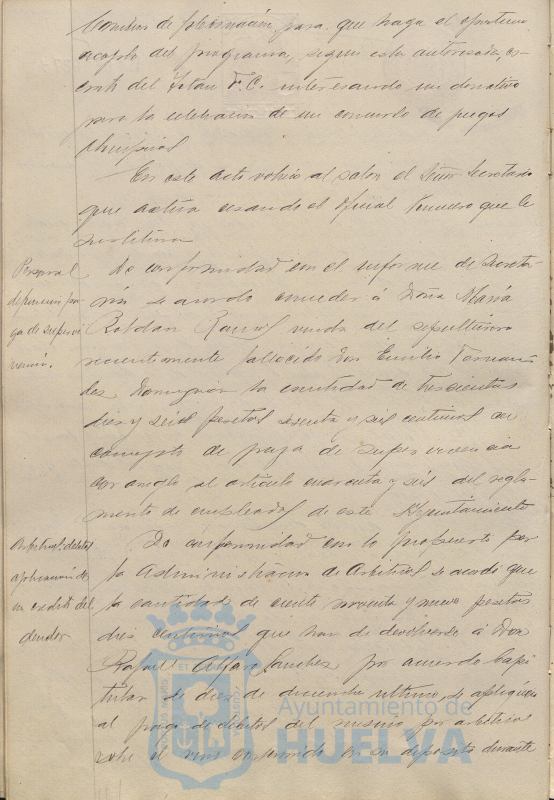 Comision de Gobernación para que haga el oportuno
acoplo del programa, segun esta autorizada, es-
crito del Titan F.C. interesando un donativo
para la celebracion de un concurso de juegos
olimpicos
En este acto volvió al salon el Señor Secretario
que actua cesando el Oficial Tercero que le
sustituia
Personal
de funcion pa-
ga de supervi
vencia.
De conformidad con el informe de Secreta-
ría se acordo conceder á Doña María
Roldan Ramos viuda del sepulturero
recientemente fallecido Don Emilio Fernan-
dez Dominguez la cantidad de trescientas
diez y seis pesetas sesenta y seis centimos en
concepto de paga de supervivencia
con arreglo al articulo cuarenta y seis del regla-
mento de empleados de este Ayuntamiento
Arbitrios, debitos
aplicacion de
un credito del
deudor
De conformidad con lo propuesto por
la Administracion de Arbitrios se acordó que
la cantidad de ciento noventa y nueve pesetas
diez centimos que han de devolverse á Don
Rafael Alfaro Sanchez por acuerdo Capi-
tular de diez de diciembre ultimo, se apliquen
al pago de debitos del mismo por arbitrios
sobre el vino consumido en su deposito durante
Ayuntamiento de
HUELVA